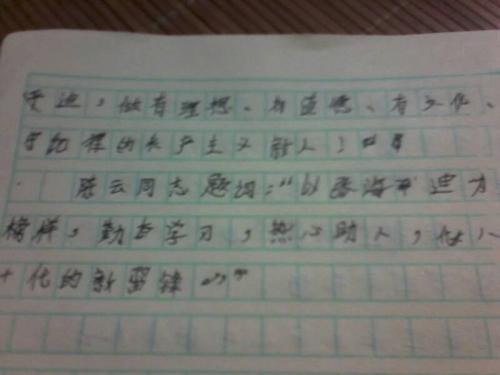 海迪，做有理想、有道德、有文化、
守纪律的共产主义新人！"
陈云同志题词："以张海迪为
榜样，勤奋学习，热心助人，做八
十年代的新雷锋。"